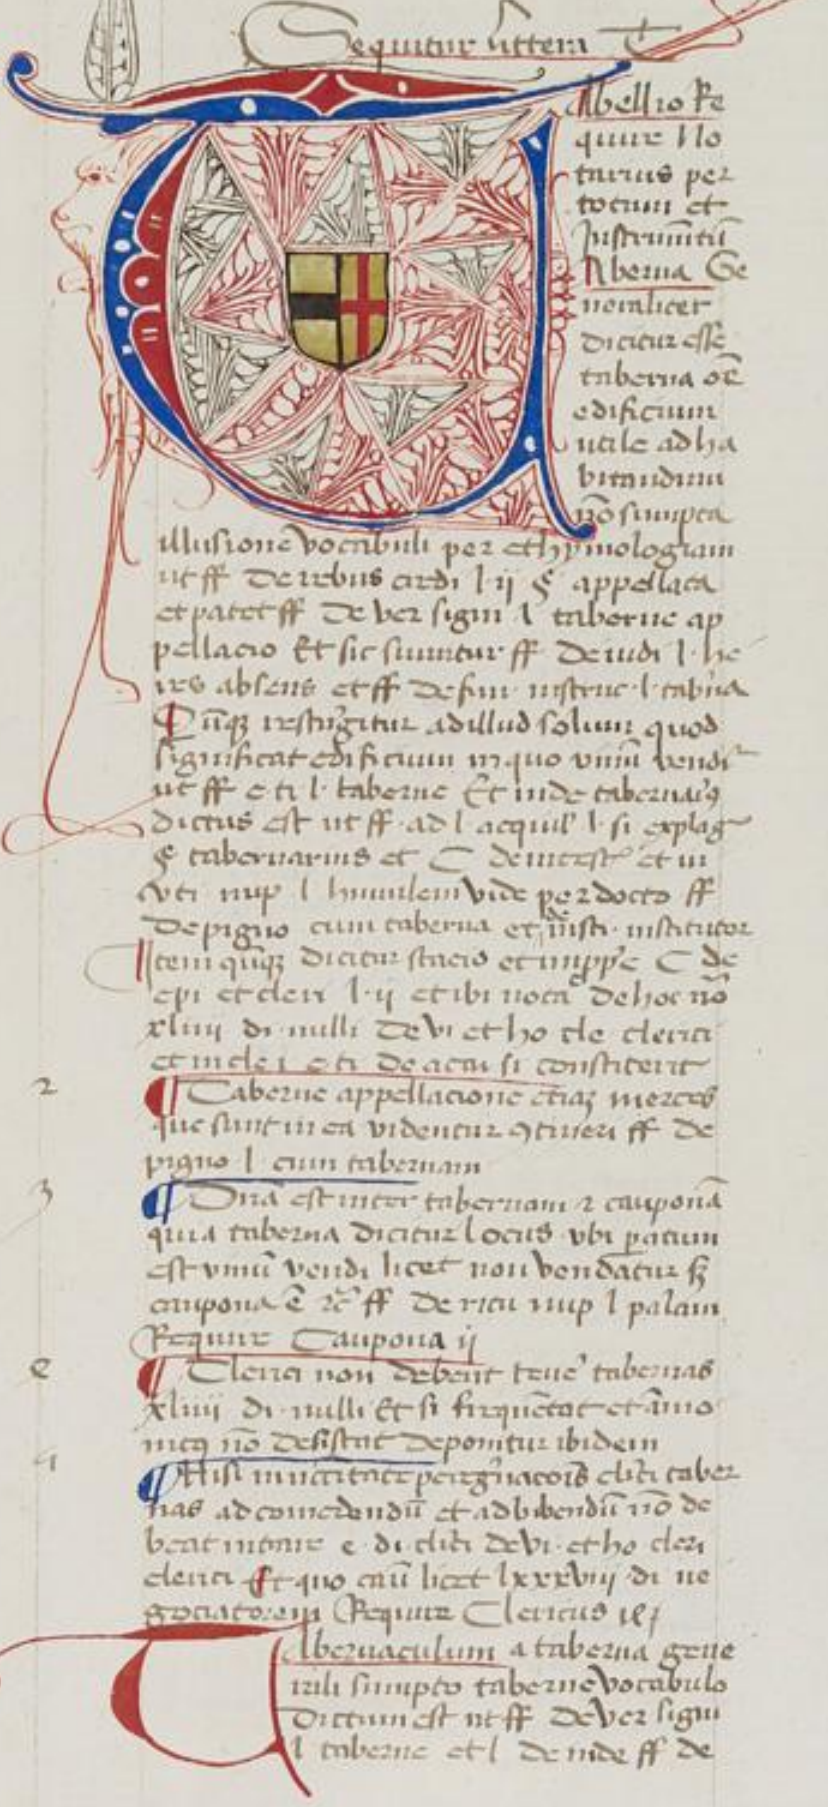 Sequitur littera T
Abellio Re
quire No
tarius per
totum et
Instrumētū
Aberna Ge
neraliter
dicitur esse
taberna oē
edificium
utile ad ha
bitandum
nō sumpta
illusione vocabuli per ethymologiam
ut ff de rebus credi l ii § appellata
et patet ff de ver signi l taberne ap
pellacio Et sic sumitur ff de iudi l he
res absens et ff de fun instruc l tabn̄a
Qūqȝ restrīgitur ad illud solum quod
significat edificium in quo vinū vendiť
ut ff e ti l taberne Et inde tabernarꝯ
dictus est ut ff ad l acquil l si ex plagˢ
§ tabernarius et C de incest et in
uti nup l humilem vide per docto ff
de pigno cum taberna et de insti institutor
Item qn̄qȝ dicitur stacio et C de
epi et cleri l ii et ibi nota de hoc nō
xliiii di nulli de vi et ho cle clerici
et in cle i e ti de actu si constiterit
2
¶ Taberne appellacione etiaȝ merces
que sunt in ea videntur ꝯtineri ff de
pigno l cum tabernam
3
¶ Dn̄a est inter tabernam ⁊ cauponā
quia taberna dicitur locus ubi paratum
est vinū vendi licet non vendatur sȝ
caupona ē ff de ritu nup l palam
Require Caupona ii
e
¶ Clerici non debent tene' tabernas
xliiii di nulli Et si frequētat et āmo
nitꝯ nō desistat deponitur ibidem
4
¶ Nisi in necitate peregrīacois clici taber
nas ad comedendū et ad bibendū nō de
beat intrare e di clici de vi et ho cleri
clerici Et quo caū licet lxxxviii di ne
gociatorem Require Clericus
Abernaculum a taberna gene
rali sumpto taberne vocabulo
dictum est ut ff de ver signi
l taberne et l deinde ff de